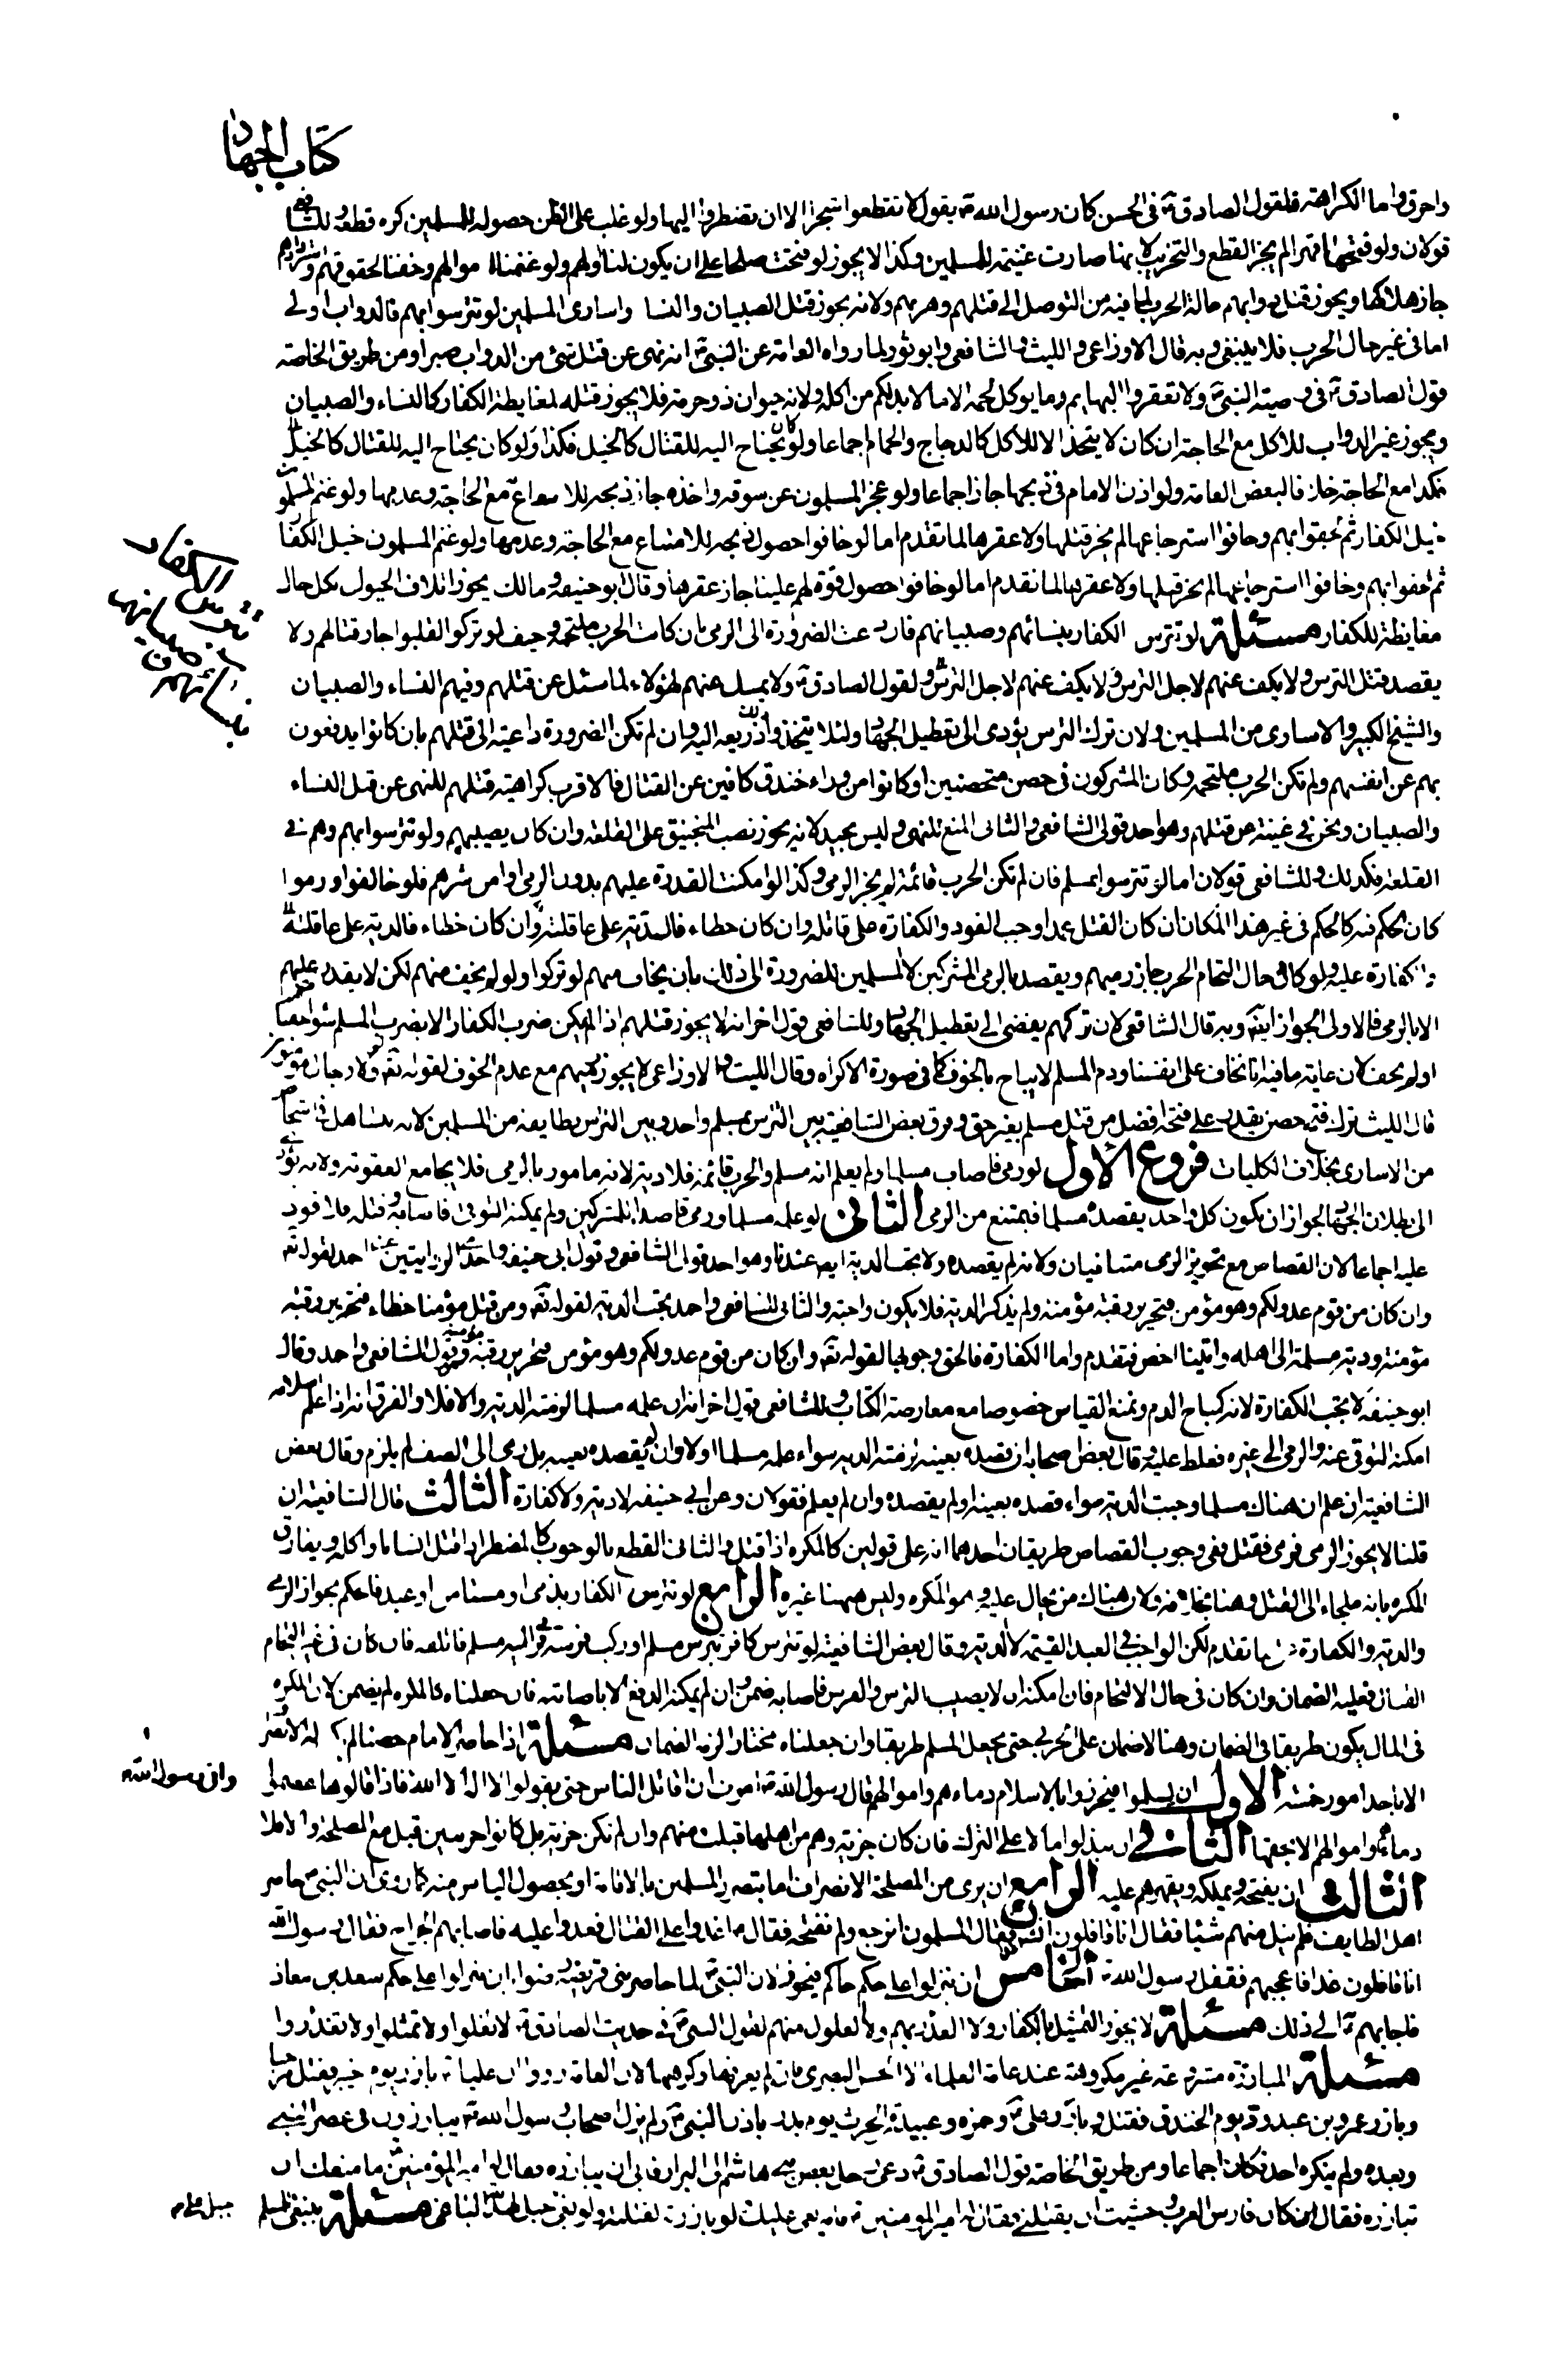 كتاب الجهاد
واحرق واما الكراهة فلقول الصادق ع في الحسن كان رسول الله ص يقول لا تقطعوا شجرا الا ان تضطروا اليها ولو غلب على الظن حصوله للمسلمين كره قطعه وللشافعي
قولان ولو فتحها قهرا لم يجز القطع والتخريب لانها صارت غنيمة للمسلمين وكذا لا يجوز لو فتحت صلحا على ان يكون لنا او لهم ولو غنمنا اموالهم وخفنا لحوقهم واستردادهم
جاز هلاكها ويجوز قتل دوابهم حالة الحرب لما فيه من التوصل الى قتلهم وهربهم ولانه يجوز قتل الصبيان والنساء واسارى المسلمين لو تترسوا بهم فالدواب اولى
اما في غير حال الحرب فلا ينبغي وبه قال الاوزاعي والليث والشافعي وابو ثور لما رواه العامة عن النبي ص انه نهى عن قتل شئ من الدواب صبرا ومن طريق الخاصة
قول الصادق ع في وصية النبي ص ولا تعقروا البهايم وما يوكل لحمه الا ما لا بد لكم من اكله ولانه حيوان ذو حرمة فلا يجوز قتله لمغايظة الكفار كالنساء والصبيان
ويجوز غير الدواب للاكل مع الحاجة ان كان لا يتخذ الا للاكل كالدجاج والحمام اجماعا ولو كان يحتاج اليه للقتال كالخيل فكذا ولو كان يحتاج اليه للقتال كالخيل
فكذا مع الحاجة خلافا لبعض العامة ولو اذن الامام في ذبحها جاز اجماعا ولو عجز المسلمون عن سوقه واخذه جاز ذبحه للانتفاع مع الحاجة وعدمها ولو غنم المسلمون
خيل الكفار ثم لحقوا بهم وخافوا استرجاعها لم يجز قتلها ولا عقرها لما تقدم اما لو خافوا حصول ذبحه للانتفاع مع الحاجة وعدمها ولو غنم المسلمون خيل الكفار
ثم لحقوا بهم وخافوا استرجاعها لم يجز قتلها ولا عقرها لما تقدم اما لو خافوا حصول قوة لهم علينا جاز عقرها وقال ابو حنيفة ومالك يجوز اتلاف الخيول بكل حال
مغايظة للكفار مسئلة لو تترس الكفار بنسائهم وصبيانهم فان دعت الضرورة الى الرمي بان كانت الحرب ملتحمة وخيف لو تركوا لغلبوا جاز قتالهم ولا
يقصد قتل الترس ولا يكف عنهم لاجل الترس ولا يكف عنهم لاجل الترس ولقول الصادق ع ولا يمسك عنهم لهؤلاء لما سئل عن قتلهم وفيهم النساء والصبيان
والشيخ الكبير والاسارى من المسلمين ولان ترك الترس يؤدي الى تعطيل الجهاد ولئلا يتخذوا ذلك ذريعة اليه وان لم تكن الضرورة داعية الى قتلهم بان كانوا يدفعون
بهم عن انفسهم ولم تكن الحرب ملتحمة وكان المشركون في حصن متحصنين او كانوا من وراء خندق كافين عن القتال فالاقرب كراهية قتلهم للنهي عن قتل النساء
والصبيان ونحن في غنية عن قتلهم وهو احد قولي الشافعي والثاني المنع للنهي وليس بجيد لانه يجوز نصب المنجنيق على القلعة وان كان يصيبهم ولو تترسوا بهم وهم في
القلعة فكذلك وللشافعي قولان اما لو تترسوا بمسلم فان لم تكن الحرب قائمة لم يجز الرمي وكذا لو امكنت القدرة عليهم بدون الرمي او امن شرهم فلو خالفوا ورموا
كان الحكم فيه كالحكم في غير هذا المكان ان كان القتل عمدا وجب القود والكفارة على قاتله وان كان خطاء فالدية على عاقلته وان كان خطاء فالدية على عاقلته
والكفارة عليه ولو كان في حال التحام الحرب جاز رميهم ويقصد بالرمي المشركين لا المسلمين للضرورة الى ذلك بان يخاف منهم لو تركوا ولو لم يخف منهم لكن لا يقدر عليهم
الا بالرمي فالاولى الجواز ايضا وبه قال الشافعي لان تركهم يفضي الى تعطيل الجهاد وللشافعي قول اخر انه لا يجوز قتلهم اذا لم يمكن ضرب الكفار الا بضرب المسلم سواء خفنا
او لم نخف لان غاية ما فيه انا نخاف على انفسنا ودم المسلم لا يباح بالخوف كما في صورة الاكراه وقال الليث والاوزاعي لا يجوز رميهم مع عدم الخوف لقوله تع ولولا رجال مؤمنون
قال الليث ترك فتح حصن يقدر على فتحه افضل من قتل مسلم بغير حق وفرق بعض الشافعية بين الترس بمسلم واحد وبين الترس بطايفة من المسلمين لانه
من الاسارى بخلاف الكليات فروع الاول لو رمى فاصاب مسلما ولم يعلم انه مسلم والحرب قائمة فلا دية لانه مامور بالرمي فلا يجامع العقوبة ولانه يؤدي
الى بطلان الجهاد لجواز ان يكون كل واحد يقصده مسلما فيمتنع من الرمي الثاني لو علمه مسلما ورمى قاصدا للمشركين ولم يمكنه التوقي فاصابه وقتله فلا قود
عليه اجماعا لان القصاص مع تجويز الرمي متنافيان ولانه لم يقصده ولا تجب الدية ايض عندنا وهو احد قولي الشافعي وقول ابي حنيفة واحدى الروايتين عن احمد لقوله تع
وان كان من قوم عدو لكم وهو مؤمن فتحرير رقبة مؤمنة ولم يذكر الدية فلا يكون واجبة والثاني للشافعي واحمد يجب الدية لقوله تع ومن قتل مؤمنا خطاء فتحرير رقبة
مؤمنة ودية مسلمة الى اهله وايتنا اخص فتقدم واما الكفارة فالحق وجوبها لقوله تع وان كان من قوم عدو لكم وهو مؤمن فتحرير رقبة مؤمنة وهو قول الشافعي واحمد وقال
ابو حنيفة لا تجب الكفارة لانه كمباح الدم ونمنع القياس خصوصا مع معارضة الكتاب وللشافعي قول اخر انه ان علمه مسلما لزمته الدية والا فلا والفرق انه اذا علم اسلامه
امكنه التوقي عنه والرمي الى غيره فغلظ عليه وقال بعض اصحابه ان قصده بعينه لزمته الدية سواء علمه مسلما او لا وان لم يقصده بعينه بل رمى الى الصف لم يلزم وقال بعض
الشافعية ان علم ان هناك مسلما وجبت الدية سواء قصده بعينه او لم يقصده وان لم يعلم فقولان وعن ابي حنيفة لا دية ولا كفارة الثالث قال الشافعية ان
قلنا لا يجوز الرمي فرمى فقتل ففي وجوب القصاص طريقان احدهما انه على قولين كالمكره اذا قتل والثاني القطع بالوجوب كالمضطر اذا قتل انسانا واكله ويفارق
المكره بانه ملجاء الى القتل وهنا بخلافه ولان هناك من يحال عليه وهو المكره وليس ههنا غيره الرابع لو تترس الكفار بذمي او مستامن او عبد فالحكم بجواز الرمي
والدية والكفارة كما تقدم لكن الواجب في العبد القيمة لا الدية وقال بعض الشافعية لو تترس كافر بترس مسلم او ركب فرسه فرماه مسلم فاتلفه فان كان في غير التحام
القتال فعليه الضمان وان كان في حال الالتحام فان امكنه ان لا يصيب الترس والفرس فاصابه ضمن وان لم يمكنه الدفع الا باصابته فان جعلناه كالمكره لم يضمن لان المكره
في المال يكون طريقا في الضمان وهنا لا ضمان على الحربي حتى يجعل المسلم طريقا وان جعلناه مختارا لزمه الضمان مسئلة اذا حاصر الامام حصنا لم يكن له الانصراف
الا باحد امور خمسة الاول ان يسلموا فيحرزوا بالاسلام دماءهم واموالهم قال رسول الله ص امرت ان اقاتل الناس حتى يقولوا لا اله الا الله فاذا قالوها عصموا مني
دماءهم واموالهم الا بحقها الثاني ان يبذلوا مالا على الترك فان كان جزية وهم من اهلها قبلت منهم وان لم تكن جزية بل كانوا حربيين قبل مع المصلحة والا فلا
الثالث ان يفتحه ويملكه ويقهرهم عليه الرابع ان يرى من المصلحة الانصراف اما بتضرر المسلمين بالاقامة او بحصول الياس منه كما روى ان النبي ص حاصر
اهل الطايف فلم ينل منهم شيئا فقال انا قافلون انش فقال المسلمون انرجع ولم نفتحه فقال ص اغدوا على القتال فغدوا عليه فاصابهم الجراح فقال رسول الله
انا قافلون غدا فاعجبهم فقفل رسول الله ص الخامس ان ينزلوا على حكم حاكم فيجوز لان النبي ص لما حاصر بني قريظة رضوا بان ينزلوا على حكم سعد بن معاذ
فاجابهم ص الى ذلك مسئلة لا يجوز التمثيل بالكفار ولا الغدر بهم ولا الغلول منهم لقول النبي ص في حديث الصادق ع لا تغلوا ولا تمثلوا ولا تغدروا
مسئلة المبارزة مشروعة غير مكروهة عند عامة العلماء الا الحسن البصري فانه لم يعرفها وكرهها لان العامة رووا ان عليا ع بارز يوم خيبر فقتل مرحبا
وبارز عمرو بن عبد ود يوم الخندق فقتله وبارز علي ع وحمزة وعبيدة بن الحرث يوم بدر باذن النبي ص ولم يزل اصحاب رسول الله ص يبارزون في عصر النبي ص
وبعده ولم ينكره احد فكان اجماعا ومن طريق الخاصة قول الصادق ع دعى رجل بعض بني هاشم الى البراز فابى ان يبارزه فقال له امير المؤمنين ع ما منعك ان
تبارزه فقال كان فارس العرب وخشيت ان يقتلني فقال له امير المؤمنين ع فانه بغى عليك لو بارزته لقتلته ولو بغى جبل لهد الباغي مسئلة ينبغي للمسلم
تترس الكفار
بنسائهم وصبيانهم
وان رسول الله ص
جبل على